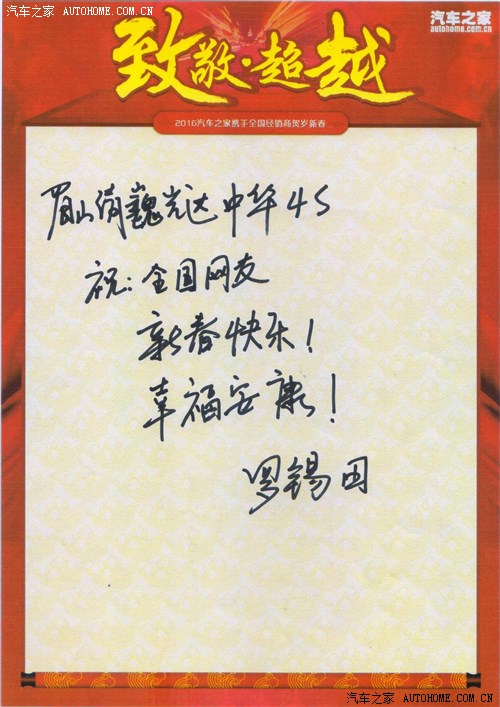 汽车之家 AUTOHOME.COM.CN
汽车之家
autohome.com.cn
致敬·超越
2016汽车之家携手全国经销商贺岁新春
眉山倚巍光达中华4S
祝:全国网友
新春快乐!
幸福安康!
罗锡田
汽车之家 AUTOHOME.COM.CN